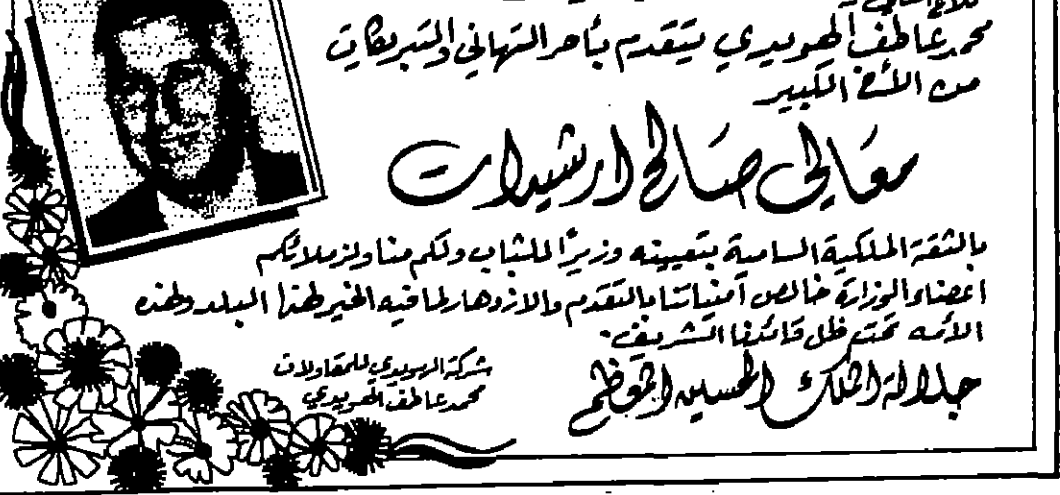 محمد عاطف الهويدي يتقدم بأحر التهاني والتبريكات
من الأخ الكبير
معالي صالح ارشيدات
بالثقة الملكية السامية بتعيينه وزيرًا للشباب ولكم منا ولزملائكم
اعضاء الوزارة خالص أمنياتنا بالتقدم والازدهار لما فيه الخير لهذا البلد ولهذه
الأمه تحت ظل قائدنا الشريف
جلالة الملك الحسين المعظم
شركة الهويدي للمقاولات
محمد عاطف الهويدي